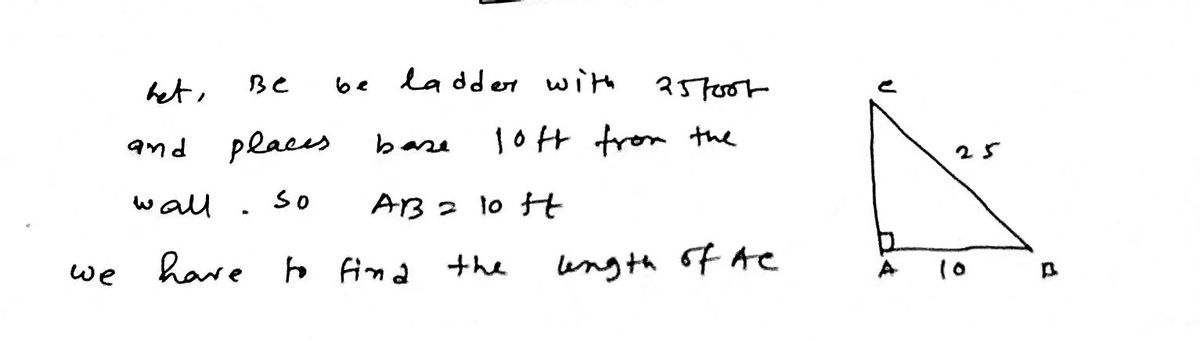 Let, BC be ladder with 25 foot
and places base 10 ft from the
wall. So AB = 10 ft
we have to find the length of AC
C
25
A 10 B